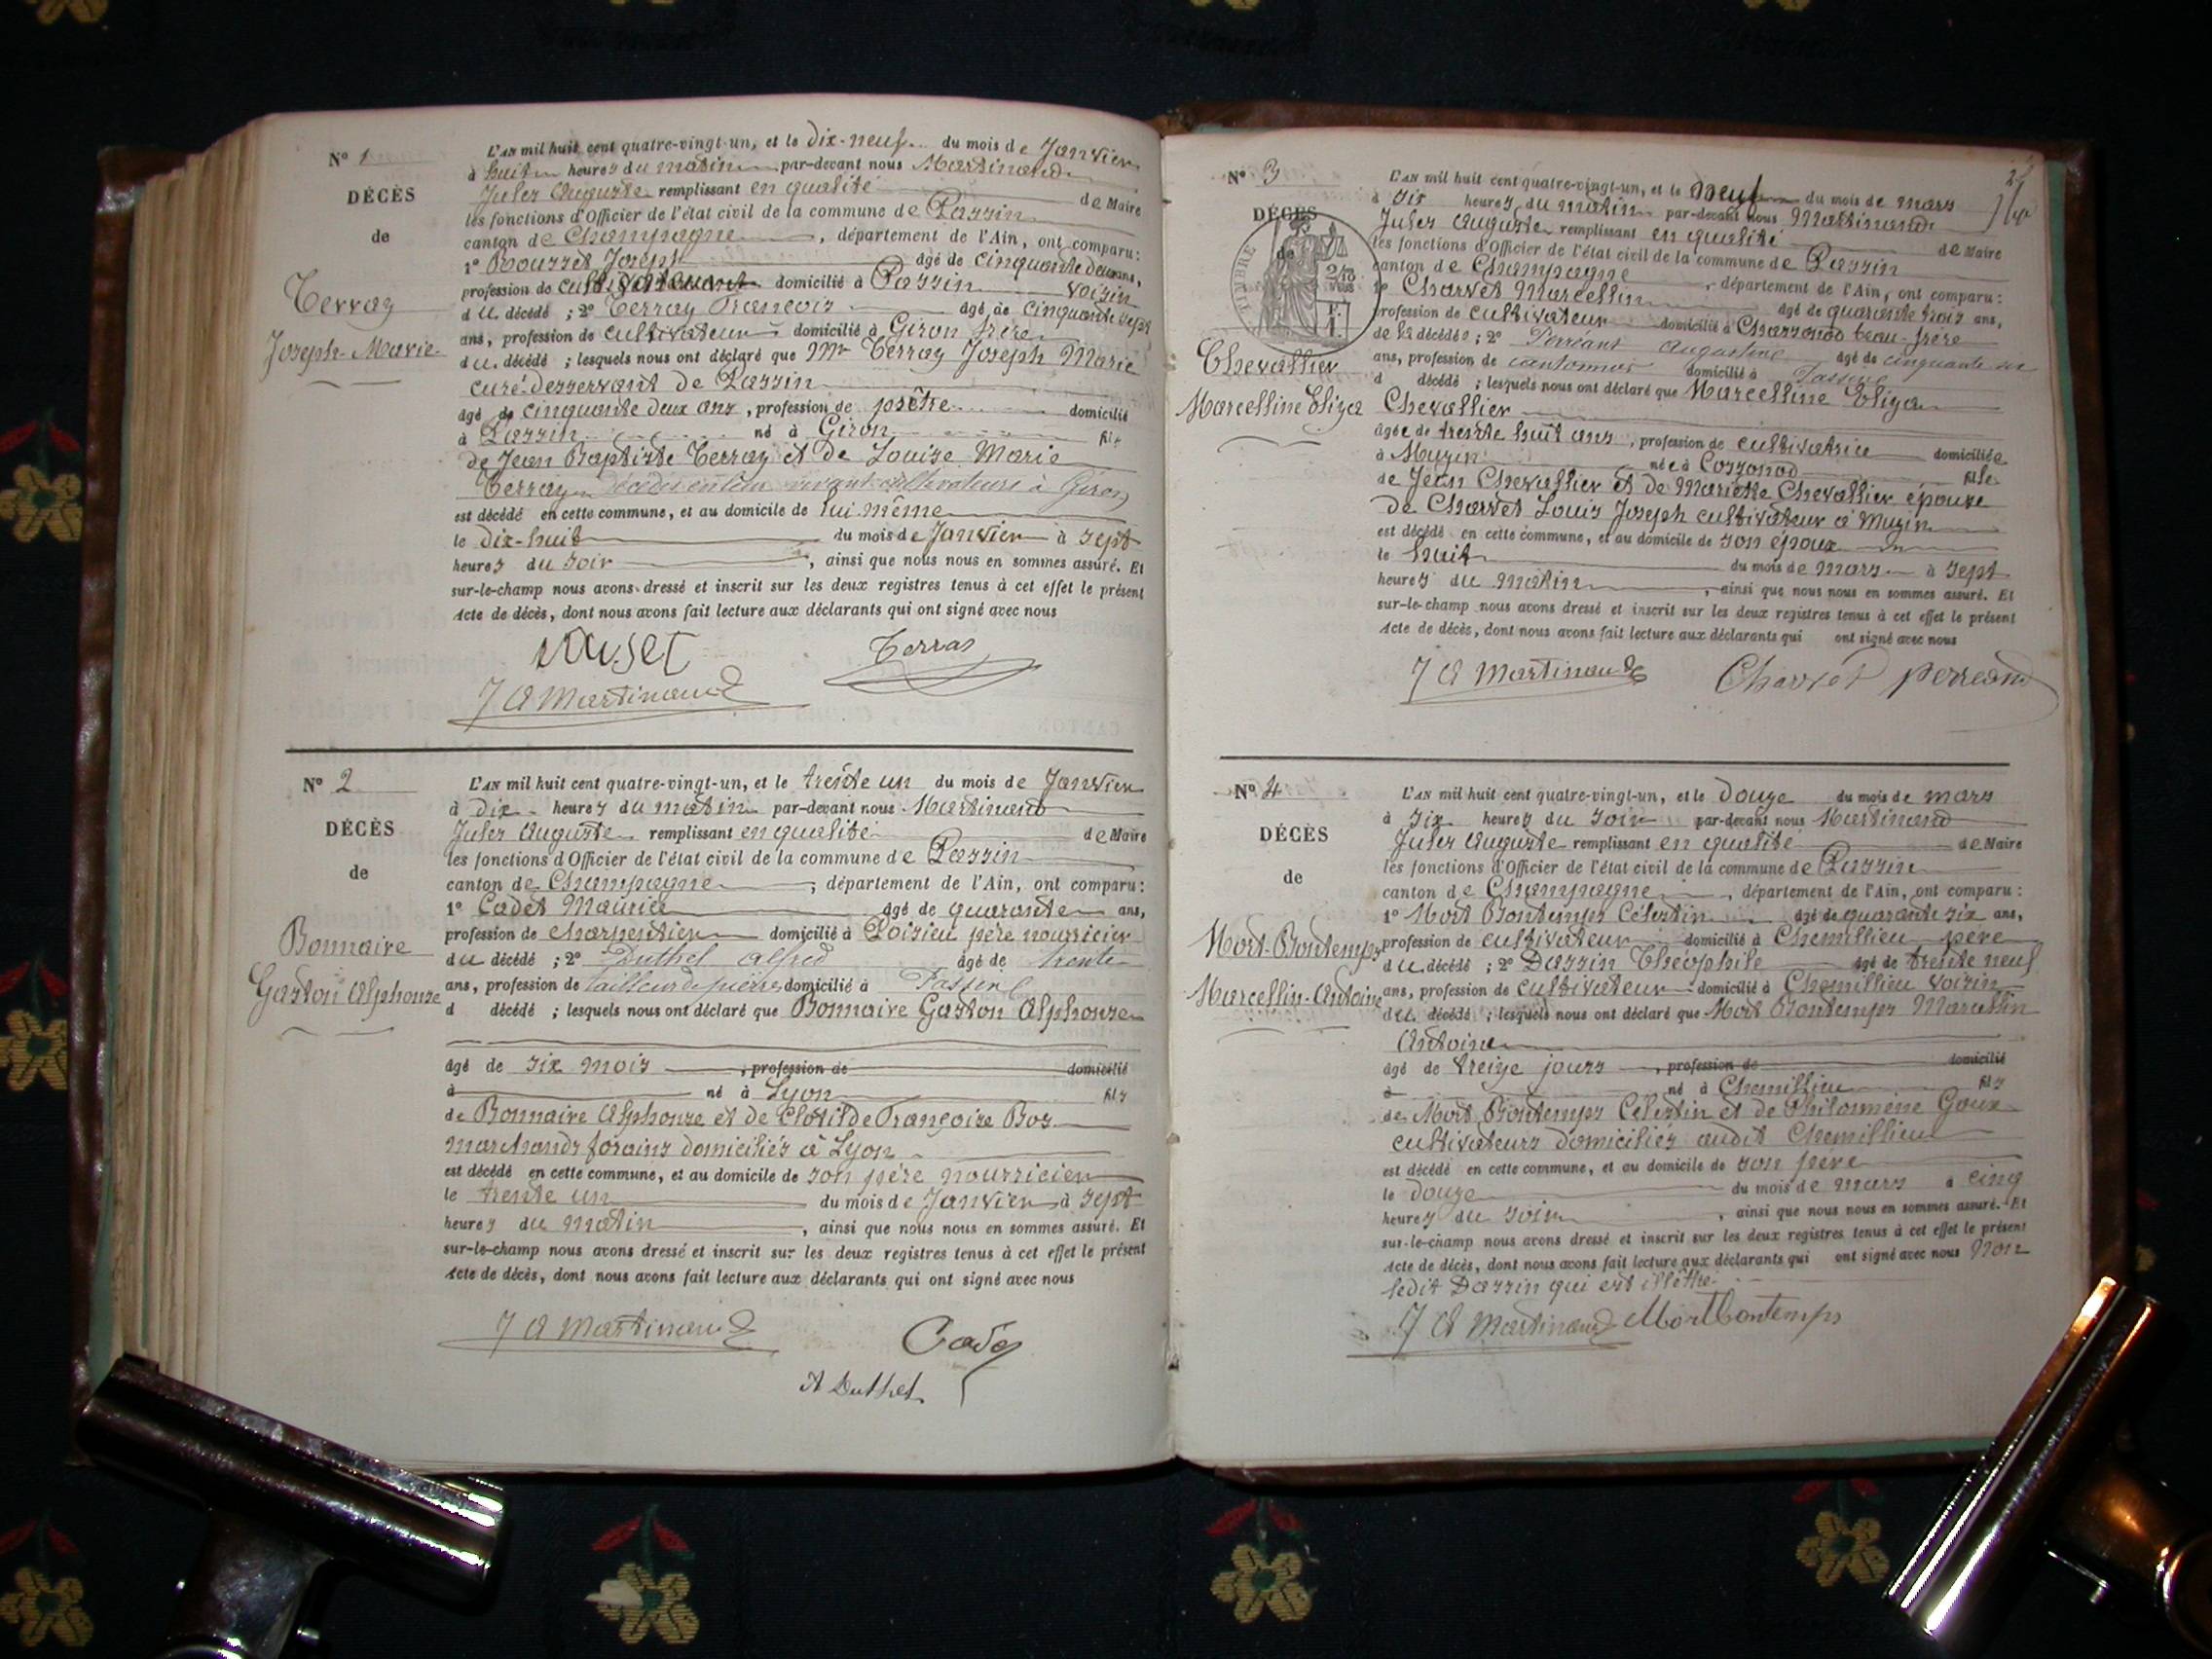 N° 1
DÉCÈS
de
Terray
Joseph-Marie
L'AN mil huit cent quatre-vingt-un, et le dix-neuf du mois de Janvier
à huit heures du matin par-devant nous Martinand
Jules Auguste remplissant en qualité de Maire
les fonctions d'Officier de l'état civil de la commune de Passin
canton de Champagne, département de l'Ain, ont comparu:
1° Rousset Joseph âgé de cinquante deux ans,
profession de domicilié à Passin voisin
du décédé ; 2° Terray François âgé de cinquante sept
ans, profession de cultivateur domicilié à Giron frère
du décédé ; lesquels nous ont déclaré que Mr Terray Joseph Marie
curé desservant de Passin
âgé de cinquante deux ans, profession de prêtre domicilié
à Passin né à Giron fils
de Jean Baptiste Terray et de Louise Marie
Terray décédés vivant cultivateurs à Giron
est décédé en cette commune, et au domicile de lui-même
le dix-huit du mois de Janvier à sept
heures du soir, ainsi que nous nous en sommes assuré. Et
sur-le-champ nous avons dressé et inscrit sur les deux registres tenus à cet effet le présent
Acte de décès, dont nous avons fait lecture aux déclarants qui ont signé avec nous
Terras
J A Martinand
N° 2
DÉCÈS
de
Bonnaire
Gaston Alphonse
L'AN mil huit cent quatre-vingt-un, et le trente un du mois de Janvier
à dix heures du matin par-devant nous Martinand
Jules Auguste remplissant en qualité de Maire
les fonctions d'Officier de l'état civil de la commune de Passin
canton de Champagne, département de l'Ain, ont comparu:
1° Cadet Maurice âgé de quarante ans,
profession de charpentier domicilié à Poisieu père nourricier
du décédé ; 2° Duthel Alfred âgé de trente
ans, profession de tailleur de pierres domicilié à Passin
d décédé ; lesquels nous ont déclaré que Bonnaire Gaston Alphonse
âgé de six mois, profession de domicilié
à né à Lyon fils
de Bonnaire Alphonse et de Clotilde Françoise Bos
marchands forains domiciliés à Lyon
est décédé en cette commune, et au domicile de son père nourricier
le trente un du mois de Janvier à sept
heures du matin, ainsi que nous nous en sommes assuré. Et
sur-le-champ nous avons dressé et inscrit sur les deux registres tenus à cet effet le présent
Acte de décès, dont nous avons fait lecture aux déclarants qui ont signé avec nous
J A Martinand Cadet
A Duthel
N° 3
DÉCÈS
de
TIMBRE
Chevallier
Marcelline Eliza
L'AN mil huit cent quatre-vingt-un, et le neuf du mois de mars
à dix heures du matin par-devant nous Martinand
Jules Auguste remplissant en qualité de Maire
les fonctions d'Officier de l'état civil de la commune de Passin
canton de Champagne, département de l'Ain, ont comparu:
1° Charvet Marcellin âgé de quarante trois ans,
profession de cultivateur domicilié à beau-frère
de la décédée ; 2° Perréant Augustine âgé de cinquante six
ans, profession de cantonnier domicilié à Passin
d décédé ; lesquels nous ont déclaré que Marcelline Eliza
Chevallier
âgée de trente huit ans, profession de cultivatrice domiciliée
à Muzin née à Cossonod fille
de Jean Chevallier et de Mariette Chevallier épouse
de Charvet Louis Joseph cultivateur à Muzin
est décédé en cette commune, et au domicile de son époux
le huit du mois de mars à sept
heures du matin, ainsi que nous nous en sommes assuré. Et
sur-le-champ nous avons dressé et inscrit sur les deux registres tenus à cet effet le présent
Acte de décès, dont nous avons fait lecture aux déclarants qui ont signé avec nous
J A Martinand Charvet perreand
N° 4
DÉCÈS
de
Mort-Bontemps
Marcellin-Antoine
L'AN mil huit cent quatre-vingt-un, et le douze du mois de mars
à six heures du soir par-devant nous Martinand
Jules Auguste remplissant en qualité de Maire
les fonctions d'Officier de l'état civil de la commune de Passin
canton de Champagne, département de l'Ain, ont comparu:
1° Mort Bontemps Célestin âgé de quarante six ans,
profession de cultivateur domicilié à Chemillieu père
du décédé ; 2° Dassin Théophile âgé de trente neuf
ans, profession de cultivateur domicilié à Chemillieu voisin
du décédé ; lesquels nous ont déclaré que Mort Bontemps Marcellin
Antoine
âgé de treize jours, profession de domicilié
à né à Chemillieu fils
de Mort Bontemps Célestin et de Philomène Goux
cultivateurs domiciliés audit Chemillieu
est décédé en cette commune, et au domicile de son père
le douze du mois de mars à cinq
heures du soir, ainsi que nous nous en sommes assuré. Et
sur-le-champ nous avons dressé et inscrit sur les deux registres tenus à cet effet le présent
Acte de décès, dont nous avons fait lecture aux déclarants qui ont signé avec nous non
ledit Dassin qui est illètré
J A Martinand Mort Bontemps